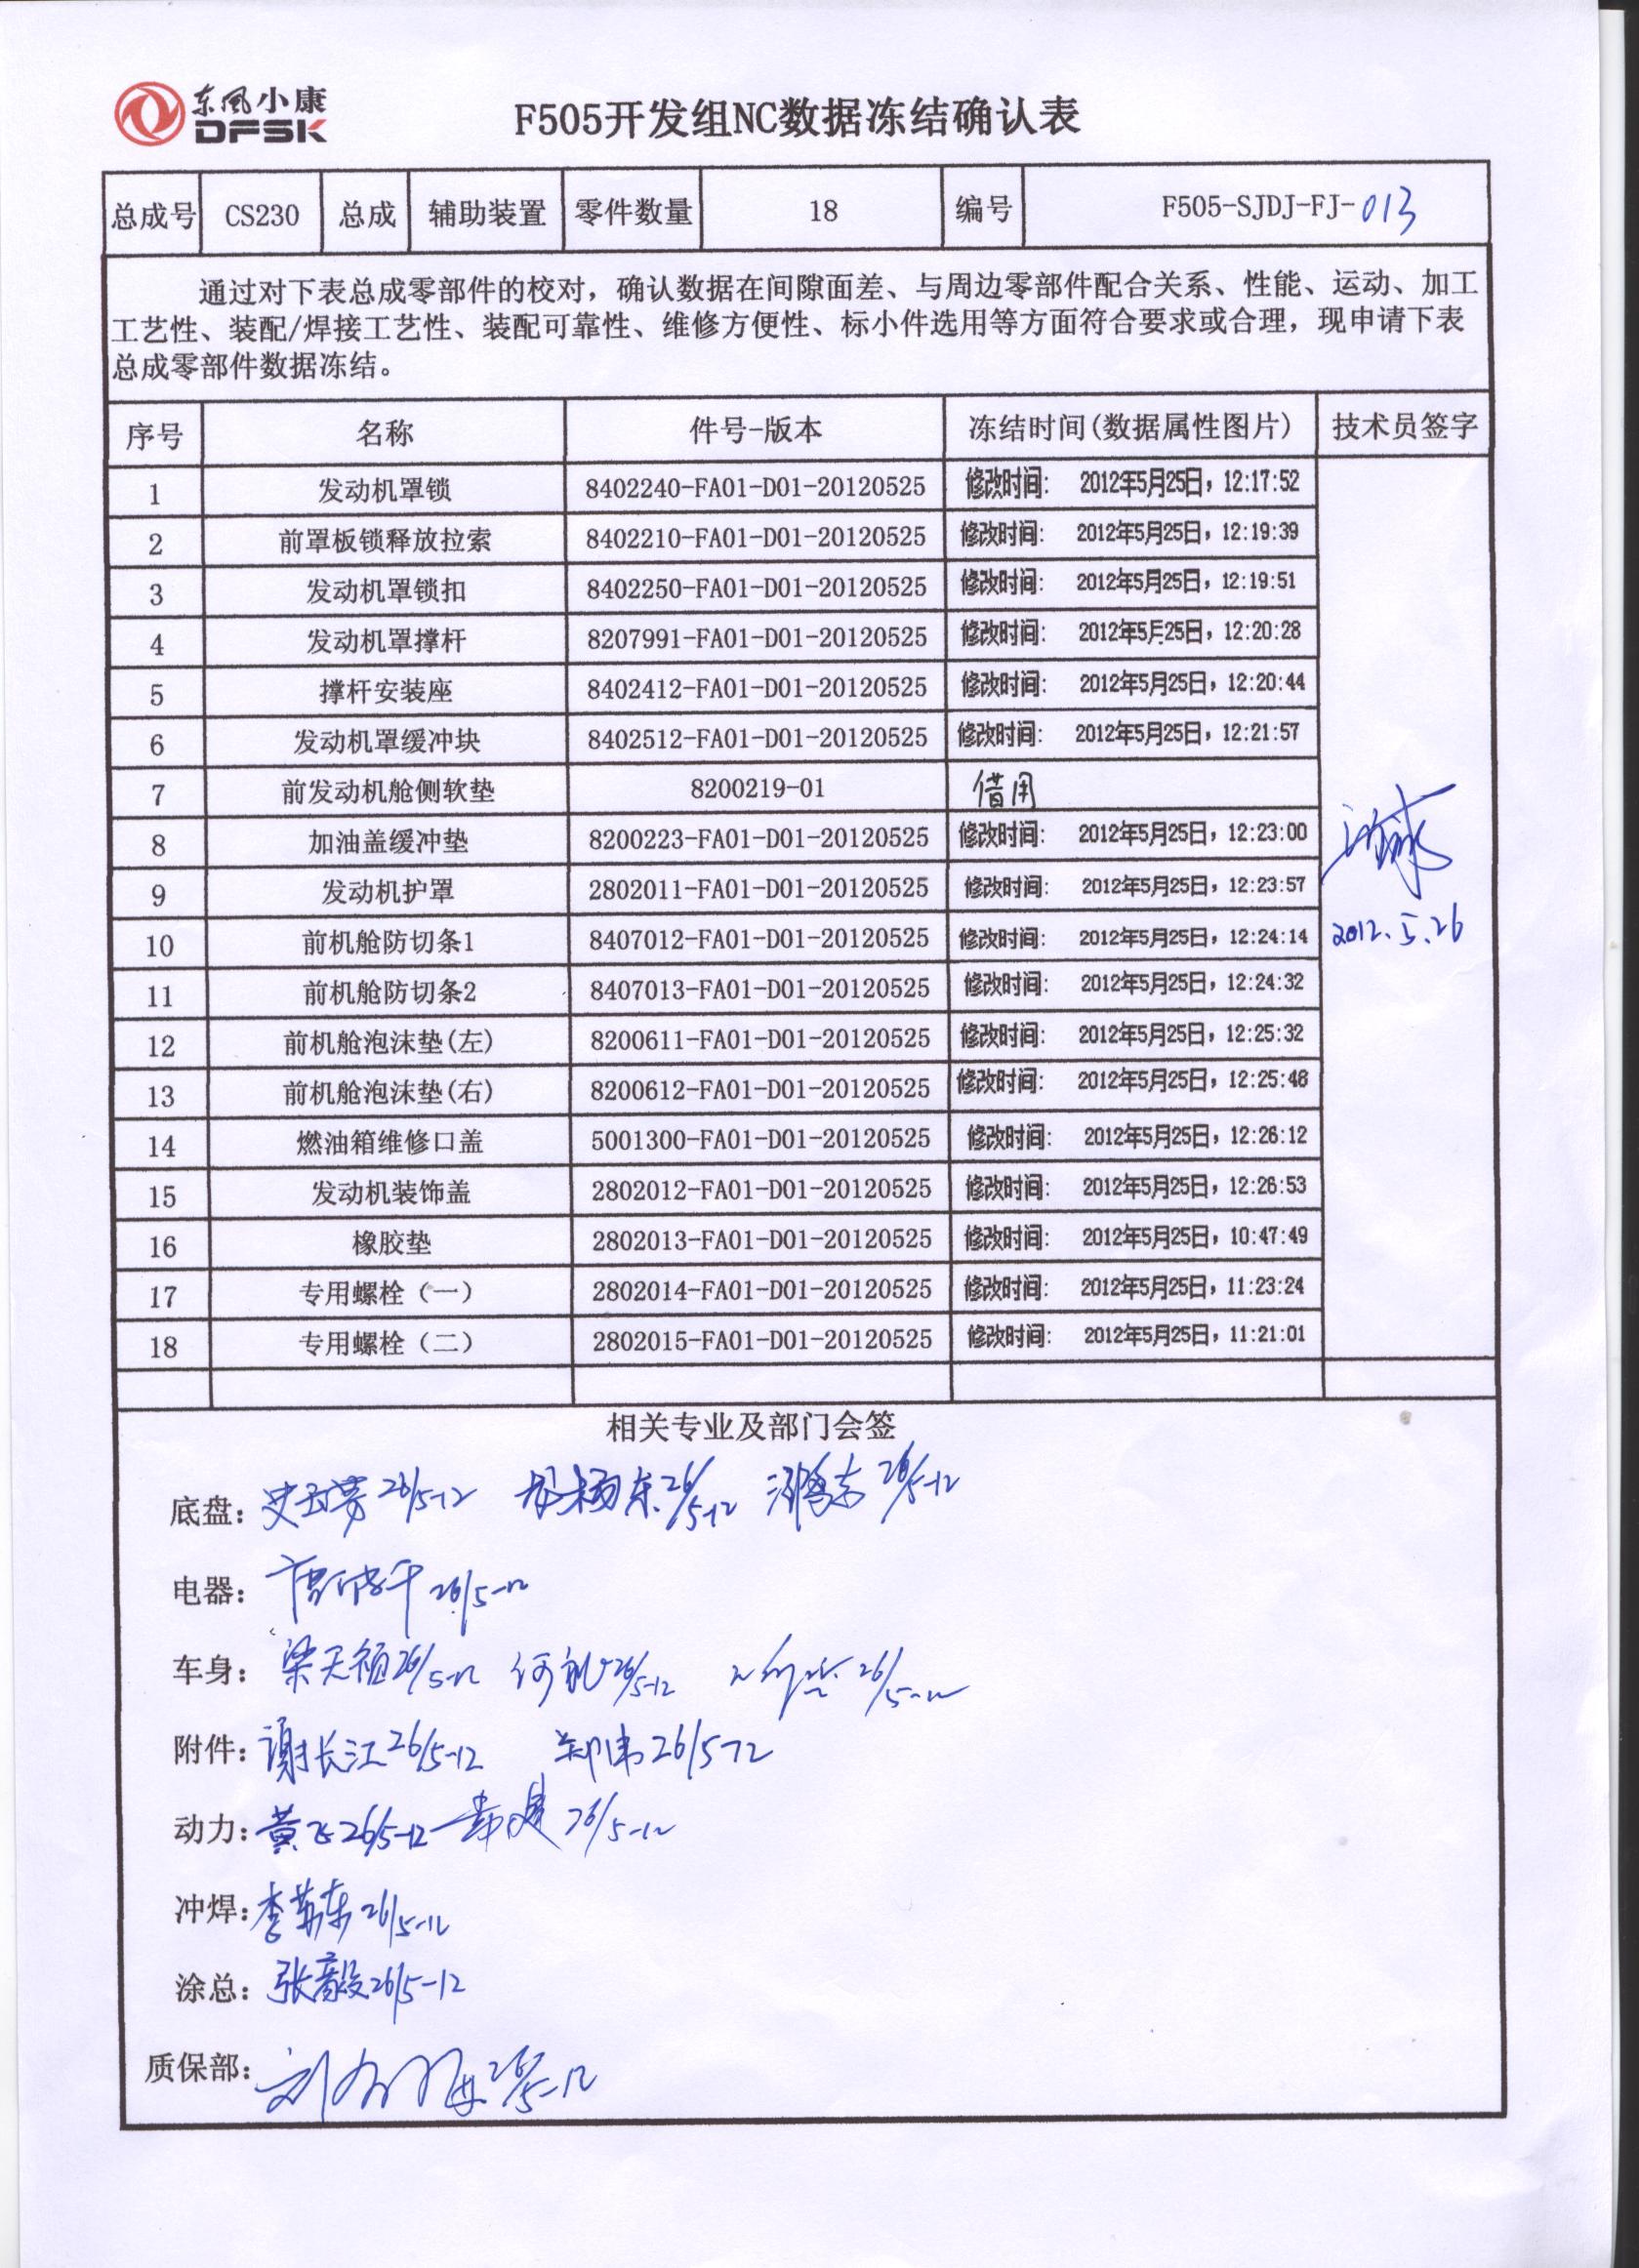 东风小康
DFSK
F505开发组NC数据冻结确认表
总成号 CS230 总成 辅助装置 零件数量 18 编号 F505-SJDJ-FJ-013
通过对下表总成零部件的校对，确认数据在间隙面差、与周边零部件配合关系、性能、运动、加工
工艺性、装配/焊接工艺性、装配可靠性、维修方便性、标小件选用等方面符合要求或合理，现申请下表
总成零部件数据冻结。
序号 名称 件号-版本 冻结时间(数据属性图片) 技术员签字
1 发动机罩锁 8402240-FA01-D01-20120525 修改时间: 2012年5月25日，12:17:52
2 前罩板锁释放拉索 8402210-FA01-D01-20120525 修改时间: 2012年5月25日，12:19:39
3 发动机罩锁扣 8402250-FA01-D01-20120525 修改时间: 2012年5月25日，12:19:51
4 发动机罩撑杆 8207991-FA01-D01-20120525 修改时间: 2012年5月25日，12:20:28
5 撑杆安装座 8402412-FA01-D01-20120525 修改时间: 2012年5月25日，12:20:44
6 发动机罩缓冲块 8402512-FA01-D01-20120525 修改时间: 2012年5月25日，12:21:57
7 前发动机舱侧软垫 8200219-01 借用
8 加油盖缓冲垫 8200223-FA01-D01-20120525 修改时间: 2012年5月25日，12:23:00
9 发动机护罩 2802011-FA01-D01-20120525 修改时间: 2012年5月25日，12:23:57
10 前机舱防切条1 8407012-FA01-D01-20120525 修改时间: 2012年5月25日，12:24:14
2012.5.26
11 前机舱防切条2 8407013-FA01-D01-20120525 修改时间: 2012年5月25日，12:24:32
12 前机舱泡沫垫(左) 8200611-FA01-D01-20120525 修改时间: 2012年5月25日，12:25:32
13 前机舱泡沫垫(右) 8200612-FA01-D01-20120525 修改时间: 2012年5月25日，12:25:48
14 燃油箱维修口盖 5001300-FA01-D01-20120525 修改时间: 2012年5月25日，12:26:12
15 发动机装饰盖 2802012-FA01-D01-20120525 修改时间: 2012年5月25日，12:26:53
16 橡胶垫 2802013-FA01-D01-20120525 修改时间: 2012年5月25日，10:47:49
17 专用螺栓（一） 2802014-FA01-D01-20120525 修改时间: 2012年5月25日，11:23:24
18 专用螺栓（二） 2802015-FA01-D01-20120525 修改时间: 2012年5月25日，11:21:01
相关专业及部门会签
底盘: 26/5-12 26/5-12 26/5-12
电器: 26/5-12
车身: 梁天祯 26/5-12 26/5-12 26/5-12
附件: 谢长江 26/5-12 郑伟 26/5-12
动力: 黄飞 26/5-12 26/5-12
冲焊: 李苏东 26/5-12
涂总: 张毅 26/5-12
质保部: 26/5-12